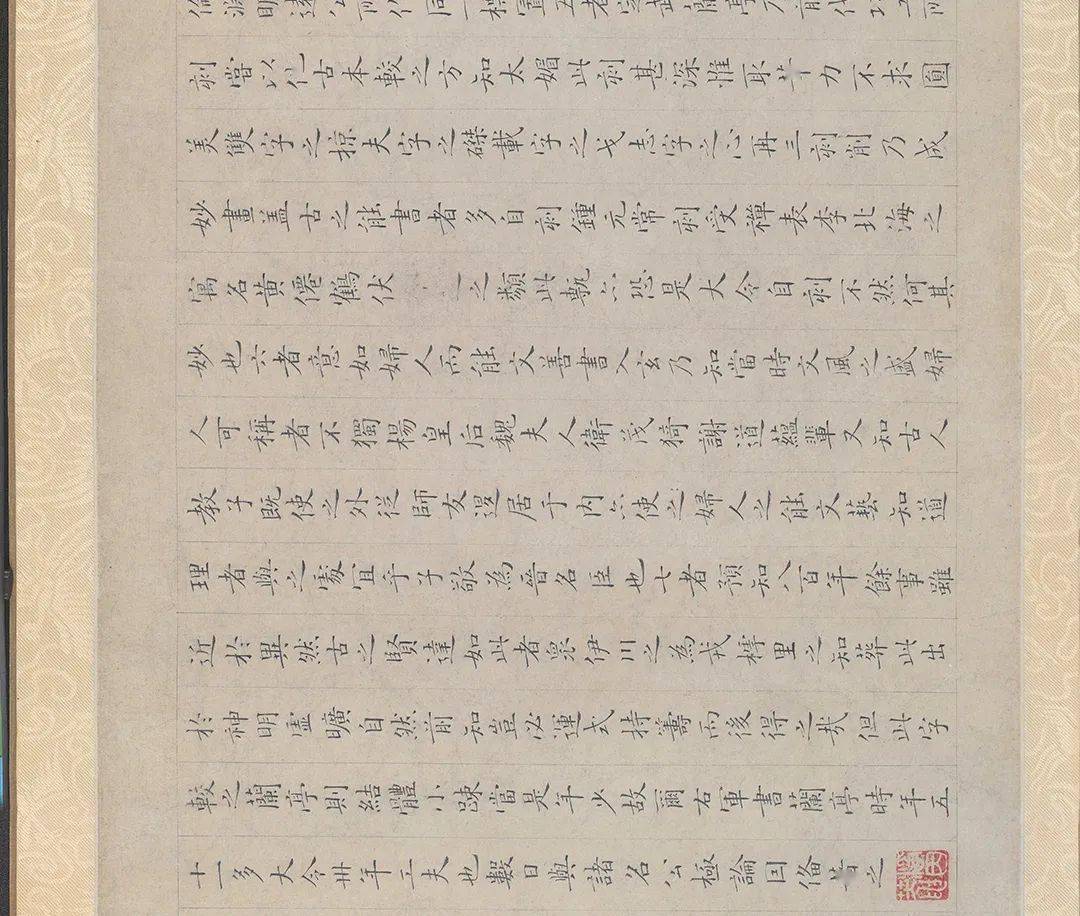 明遠公所作同一標置五者定武蘭亭乃前代巧工所
刻嘗以他古本較之方知太媚此刻甚深惟取筆力不求圓
美雙字之掠夫字之磔載字之戈志字之心再三刻削乃成
妙畫蓋古之能書者多自刻鍾元常刻受禪表李北海之
寓名黃僊鶴伏之類此甎亦恐是大令自刻不然何其
妙也六者意如婦人而能文善書入玄乃知當時文風之盛婦
人可稱者不獨楊皇后魏夫人衛茂猗謝道蘊輩又知古人
教子既使之外從師友退居于內亦使之婦人之能文藝知道
理者與之處宜乎子敬為晉名臣也七者預知八百年餘事雖
近於異然古之賢達如此者眾伊川之為戎樗里之知葬此出
於神明虛曠自然前知豈必運式持籌而後得之哉但此字
較之蘭亭則結體小疎當是年少故爾右軍書蘭亭時年五
十一多大令卅年工夫也數日與諸名公極論因備著之